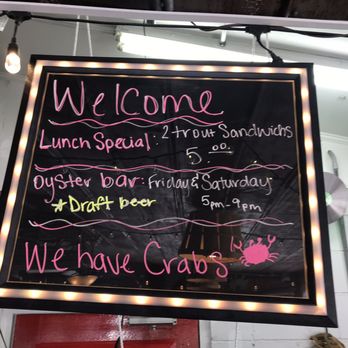 Welcome
Lunch Special: 2 trout Sandwichs
5.00
Oyster bar: Friday & Saturday
Draft beer 5pm-9pm
We have Crabs